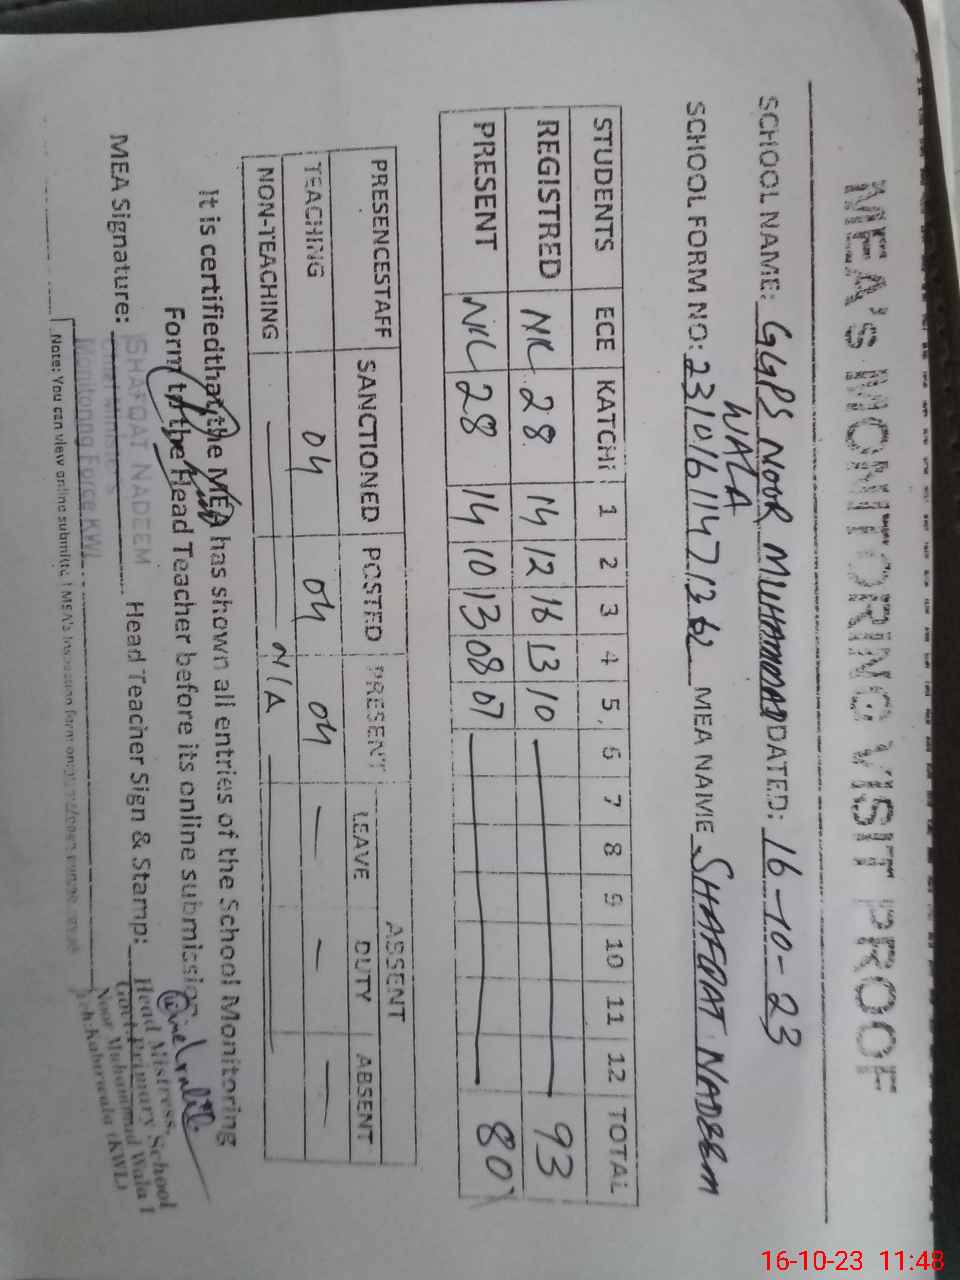 MEA'S MONITORING VISIT PROOF
SCHOOL NAME: GGPS NOOR MUHAMMAD DATED: 16-10-23
WALA
SCHOOL FORM NO: MEA NAME SHAFQAT NADEEM
STUDENTS ECE KATCHI 1 2 3 4 5 6 7 8 9 10 11 12 TOTAL
REGISTRED NIL 28 14 12 16 13 10 93
PRESENT NIL 28 14 10 13 08 07 80
ABSENT
PRESENCESTAFF SANCTIONED POSTED PRESENT LEAVE DUTY ABSENT
TEACHING 04 04 04 — — —
NON-TEACHING N/A
It is certifiedthat the MEA has shown all entries of the School Monitoring
Form to the Head Teacher before its online submission
MEA Signature: Head Teacher Sign & Stamp:
SHAFQAT NADEEM
Chief Minister's
Monitoring Force KWL
Head Mistress,
Govt. Primary School
Noor Muhammad Wala 1
Teh.Kabirwala (KWL)
Note: You can view online submitted MEA's
16-10-23 11:48